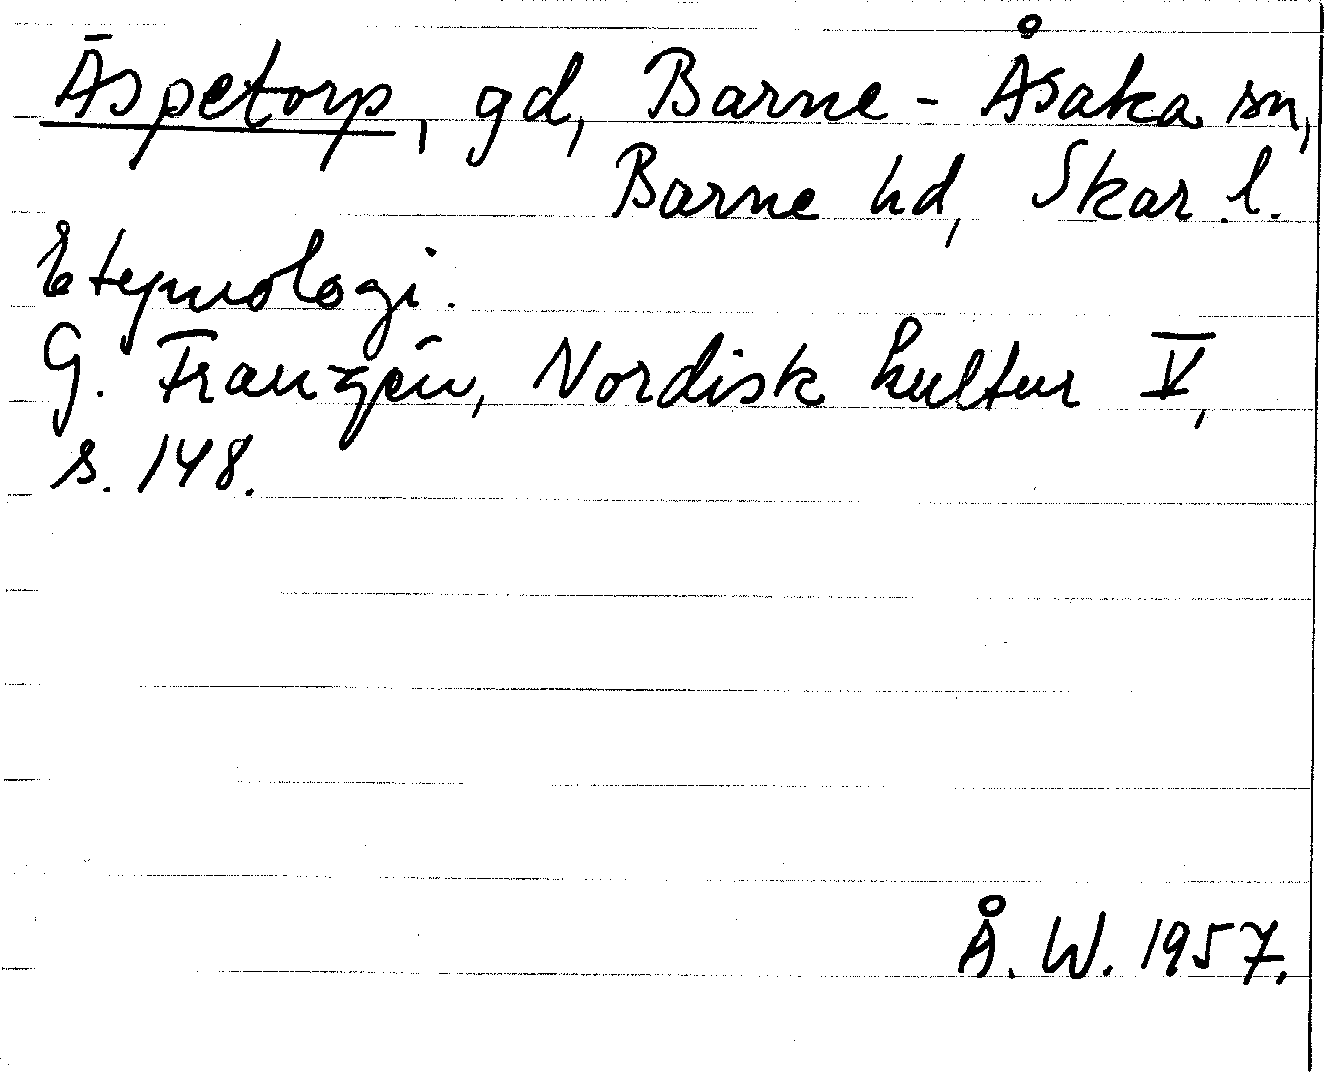 Äspetorp, gd, Barne-Åsaka sn,
Barne hd, Skar. l.
Etymologi.
G. Franzén, Nordisk kultur V,
s. 148.
Å. W. 1957.